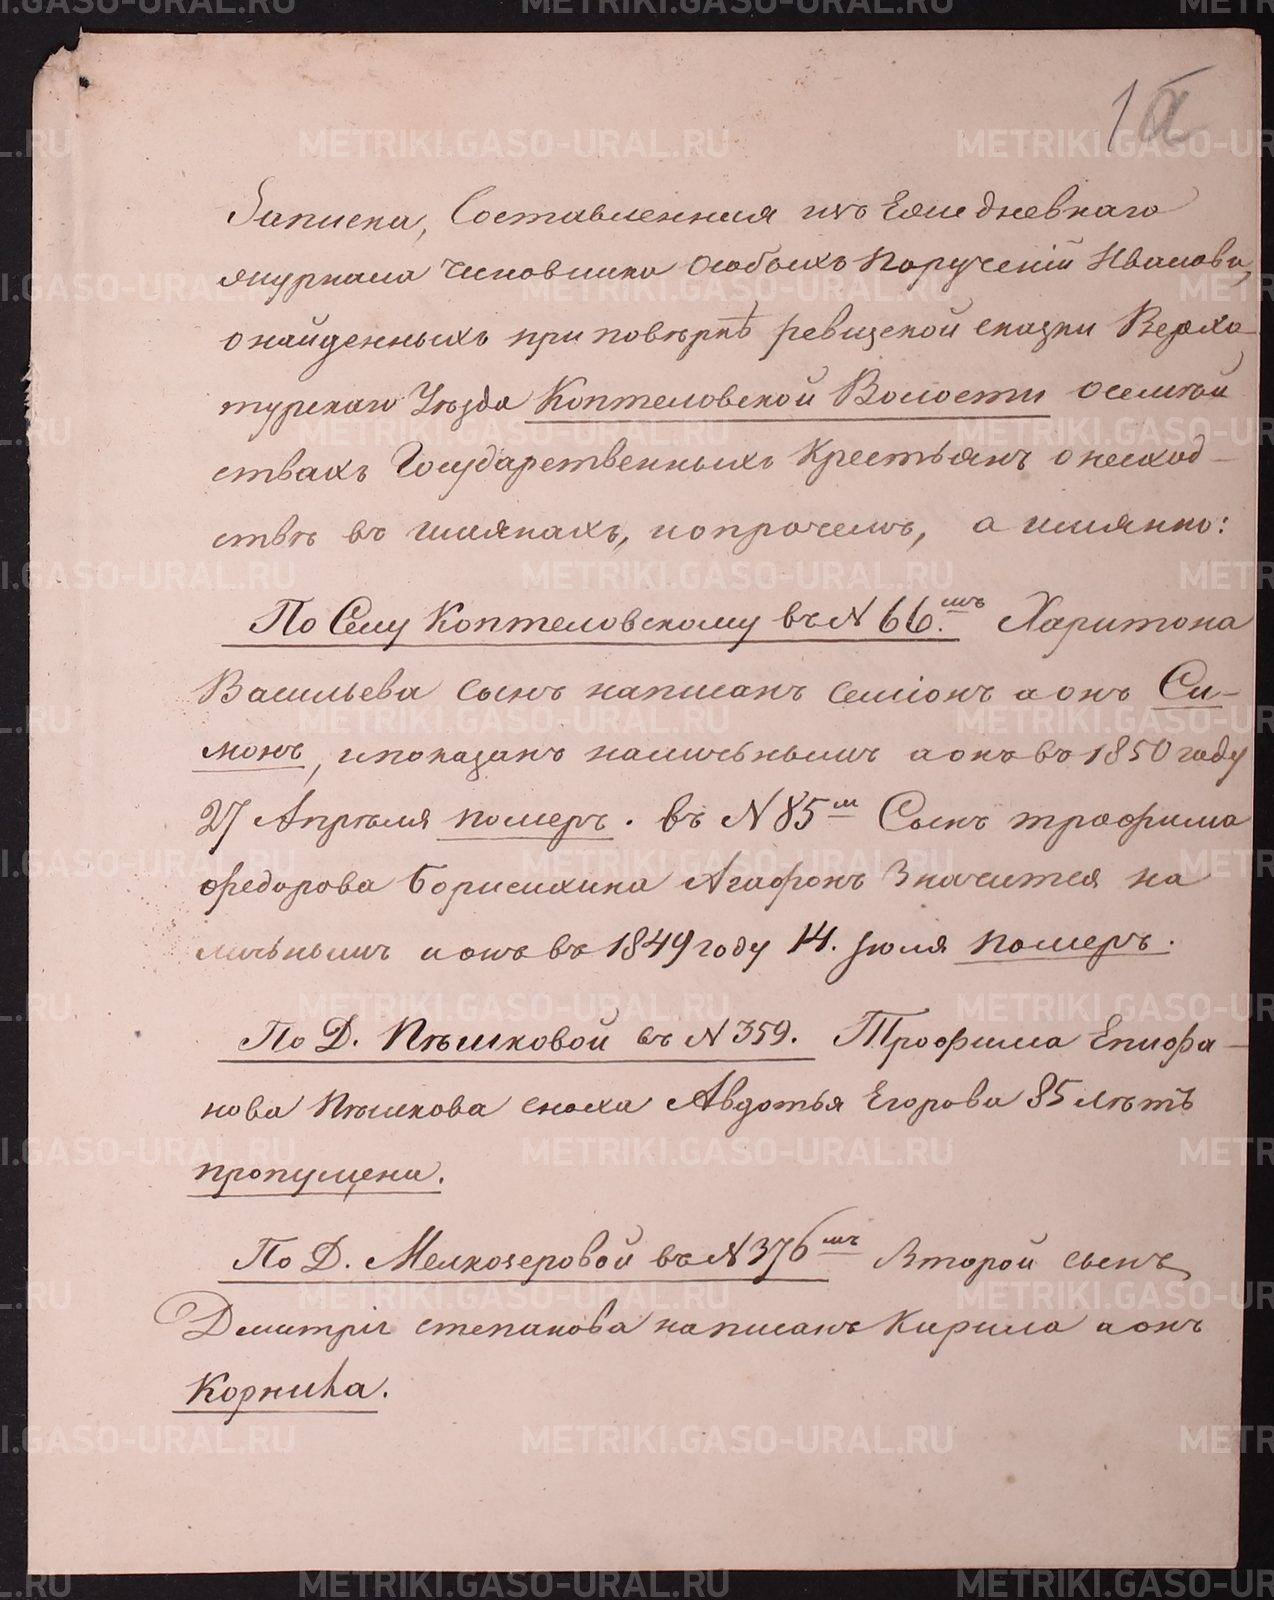 1а
Записка, Составленная изъ Ежедневнаго
журнала Чиновника Особыхъ Порученій Иванова,
о найденныхъ при повѣркѣ ревизской сказки Верхо-
турскаго Уѣзда Коптеловской Волости о семѣй
ствахъ Государственныхъ Крестьянъ о несход-
ствѣ въ имянахъ, и о прочемъ, а имянно:
По Селу Коптеловскому въ N 66.мъ Харитона
Васильева сынъ написанъ Семіонъ а онъ Си-
монъ, и показанъ наличьнымъ а онъ въ 1850 году
27 Апрѣля померъ. въ N 85м Сынъ трофима
федорова Борисихина Агафонъ Значится на
личьнымъ и онъ въ 1849 году 14. Іюля померъ.
По Д. Пѣшковой въ N 359. Трофима Епифа-
нова Пѣшкова сноха Авдотья Егорова 85 лѣтъ
пропущена.
По Д. Мелкозеровой въ N 376мъ Второй сынъ
Дмитрія степанова написанъ Кирила а онъ
Корнила.
METRIKI.GASO-URAL.RU